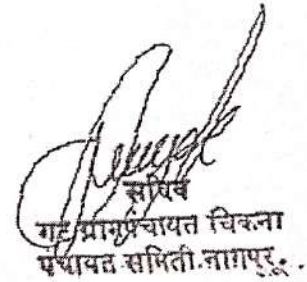 सचिव
गट ग्रामपंचायत चिकना
पंचायत समिती.नागपूर.